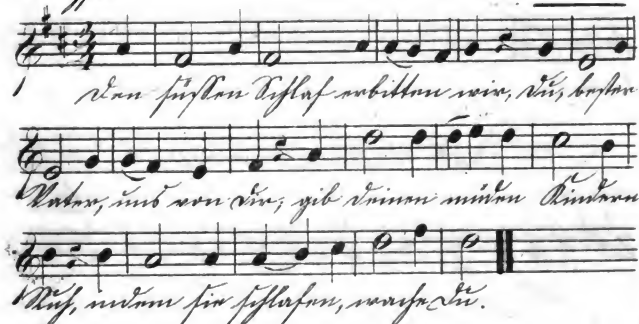 Den süßen Schlaf erbitten wir, Du, bester
Vater, uns von Dir; gib deinen müden Kindern
Ruh, indem sie schlafen, wache Du.